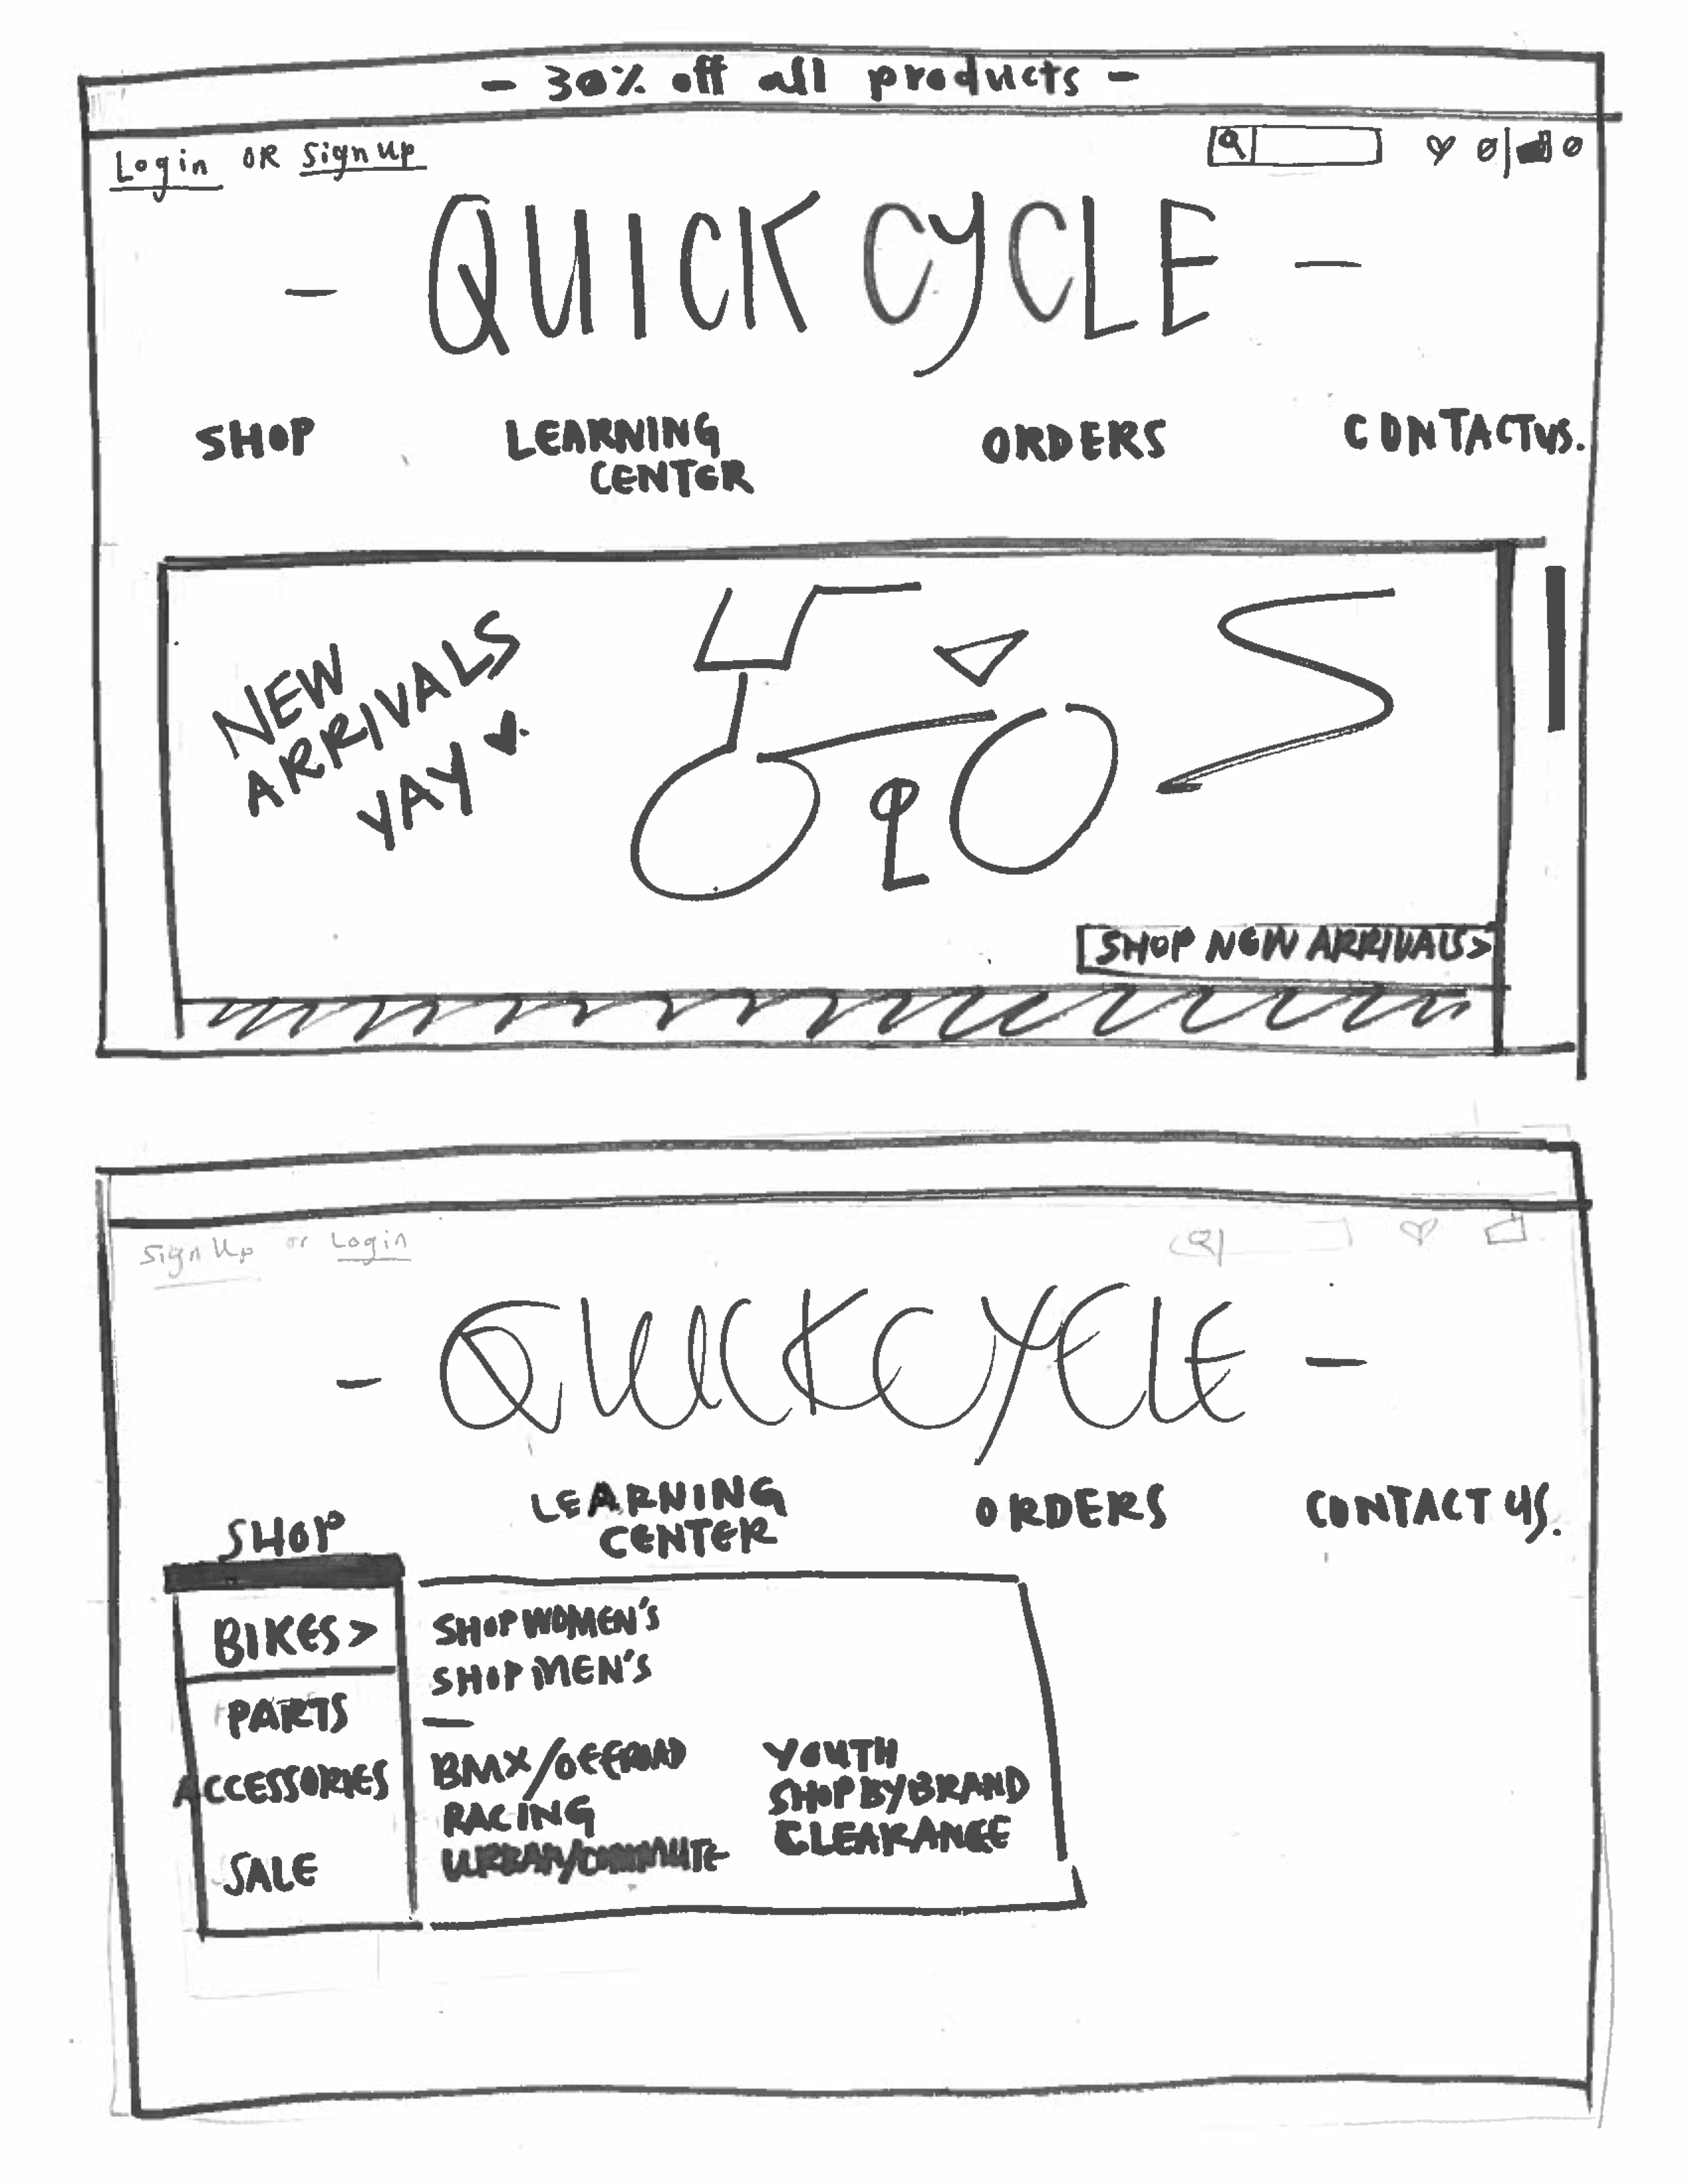 - 30% off all products -
Login OR Sign Up
0 | 0
- QUICK CYCLE -
SHOP
LEARNING
CENTER
ORDERS
CONTACT US.
NEW
ARRIVALS
YAY ♥.
SHOP NEW ARRIVALS>
Sign Up or Login
- QUICKCYCLE -
SHOP
LEARNING
CENTER
ORDERS
CONTACT US.
BIKES >
PARTS
ACCESSORIES
SALE
SHOP WOMEN'S
SHOP MEN'S
—
BMX/OFFROAD
RACING
URBAN/COMMUTE
YOUTH
SHOP BY BRAND
CLEARANCE